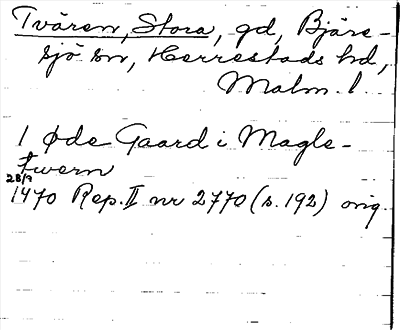 Tvären, Stora, gd, Bjäre-
sjö sn, Herrestads hd,
Malm. l.
1 øde Gaard i Magle-
twern
28/9
1470 Rep. II nr 2770 (s. 192) orig.